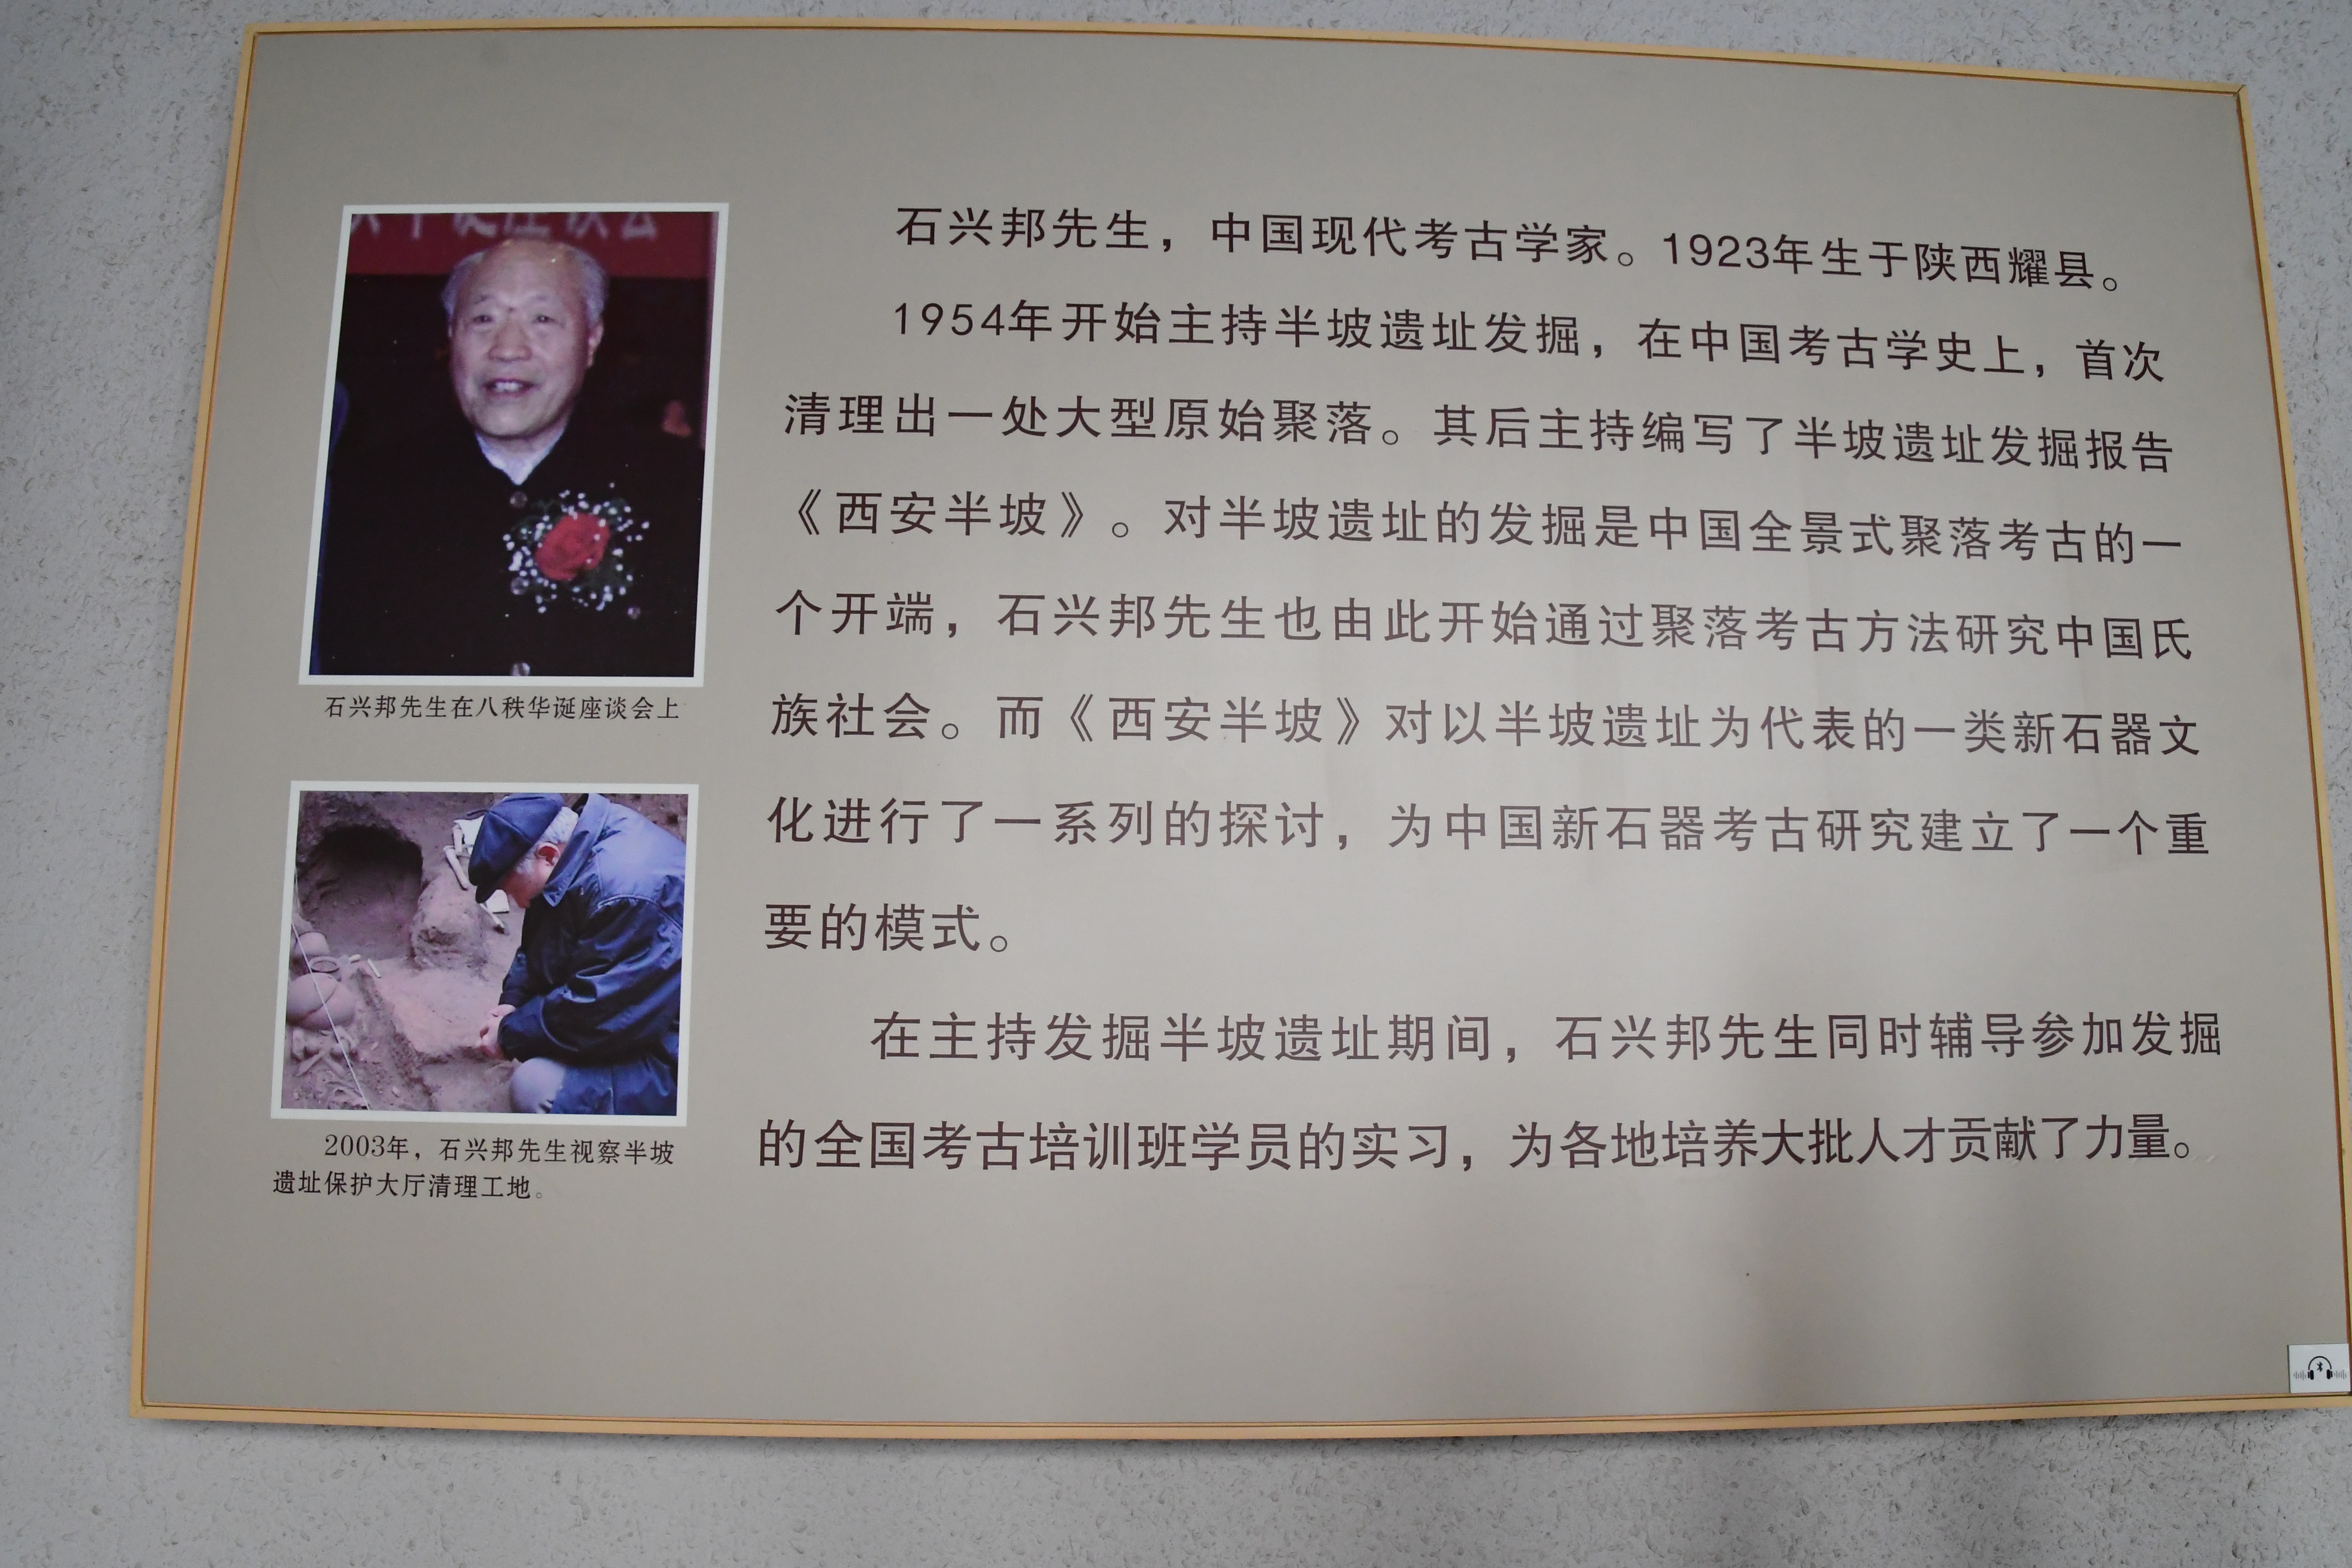 石兴邦先生，中国现代考古学家。1923年生于陕西耀县。
1954年开始主持半坡遗址发掘，在中国考古学史上，首次
清理出一处大型原始聚落。其后主持编写了半坡遗址发掘报告
《西安半坡》。对半坡遗址的发掘是中国全景式聚落考古的一
个开端，石兴邦先生也由此开始通过聚落考古方法研究中国氏
族社会。而《西安半坡》对以半坡遗址为代表的一类新石器文
化进行了一系列的探讨，为中国新石器考古研究建立了一个重
要的模式。
在主持发掘半坡遗址期间，石兴邦先生同时辅导参加发掘
的全国考古培训班学员的实习，为各地培养大批人才贡献了力量。
石兴邦先生在八秩华诞座谈会上
2003年，石兴邦先生视察半坡
遗址保护大厅清理工地。